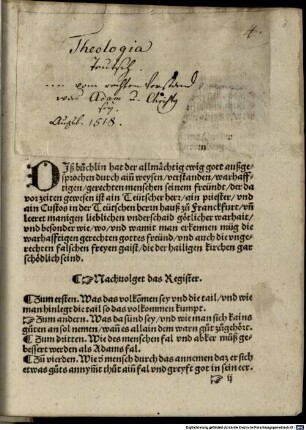 Theologia
Teutsch.
.... vom rechten verstand
was Adam u. Christus
sey.
Augsb. 1518.
DIß büchlin hat der allmächtig ewig gott außge-
sprochen durch ain weysen/ verstanden/ warhaff-
tigen/ gerechten menschen seinem freündt/ der da
vor zeiten gewesen ist ain Teütscher herr/ ain priester/ vnd
ain Custos in der Teütschen herrn hauß zu Franckfurt/ vñ
leeret manigen lieblichen vnderschaid götlicher warhait/
vnd besonder wie/ wo/ vnd wamit man erkennen müg die
warhafftigen gerechten gottes freünd/ vnd auch die vnge-
rechten falschen freyen gaist/ die der hailigen kirchen gar
schödlich seind.
Nachuolget das Register.
Zum ersten. Was das volkōmen sey vnd die tail/ vnd wie
man hinlegt die tail so das vollkommen kumpt.
Zum andern. Was da sünd sey/ vnd wie man sich kains
gůten an sol nemen/ wañ es allain dem warn gůt zůgehört.
Zum dritten. Wie des menschen fal vnd abker můß ge-
bessert werden als Adams fal.
Zů vierden. Wie ð mensch durch das annemen daz er sich
etwas gůts annym̃t thůt ain fal/ vnd greyft got in sein eer.
ij